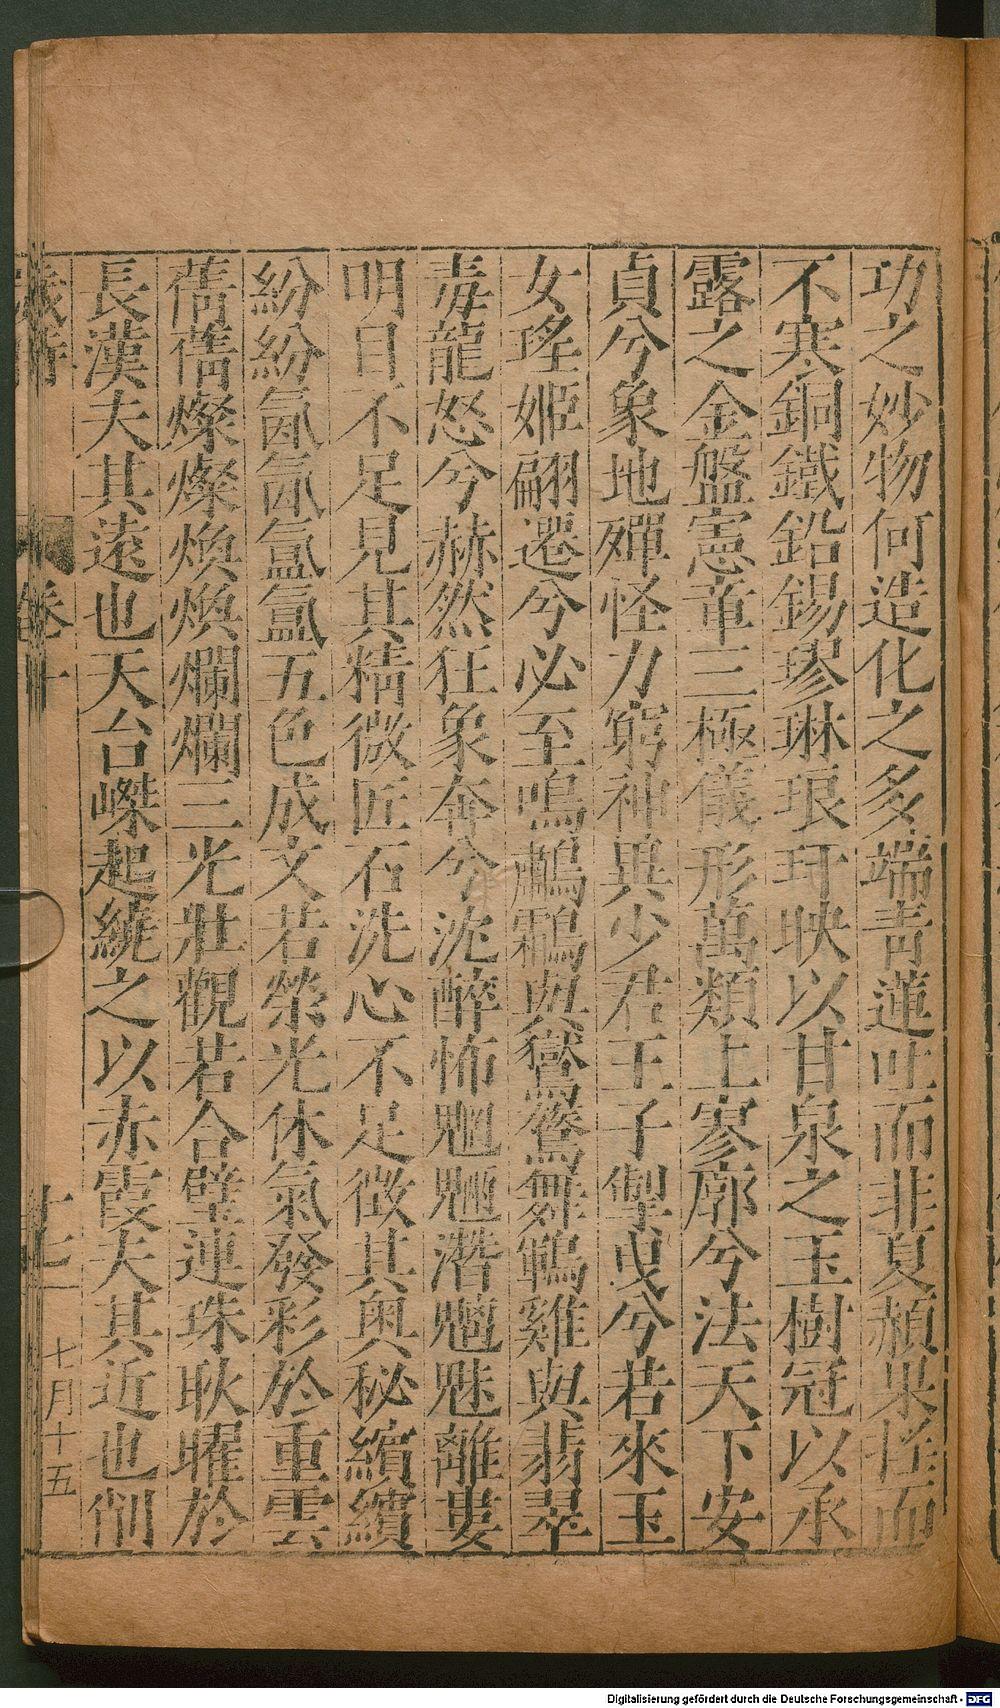 功之妙物何造化之多端青蓮吐而非夏赬果搖而
不寒銅鐵鉛錫璆琳琅玕映以甘泉之玉樹冠以承
露之金盤憲章三極儀形萬類上寥廓兮法天下安
貞兮象地殫怪力窮神異少君王子掣曳兮若來玉
女瑤姬翩遷兮必至鳴鶊鸘與鸑鷟舞鶤雞與翡翠
毒龍怒兮赫然狂象奔兮沈醉怖魍魎潛魑魅離婁
明目不足見其精微匠石洗心不足徵其奧秘繽繽
紛紛氤氤氳氳五色成文若榮光休氣發彩於重雲
蒨蒨燦燦煥煥爛爛三光壯觀若合璧連珠耿曜於
長漢夫其遠也天台嵥起繞之以赤霞夫其近也削
歲時
卷十
十七
七月十五
Digitalisierung gefördert durch die Deutsche Forschungsgemeinschaft - DFG